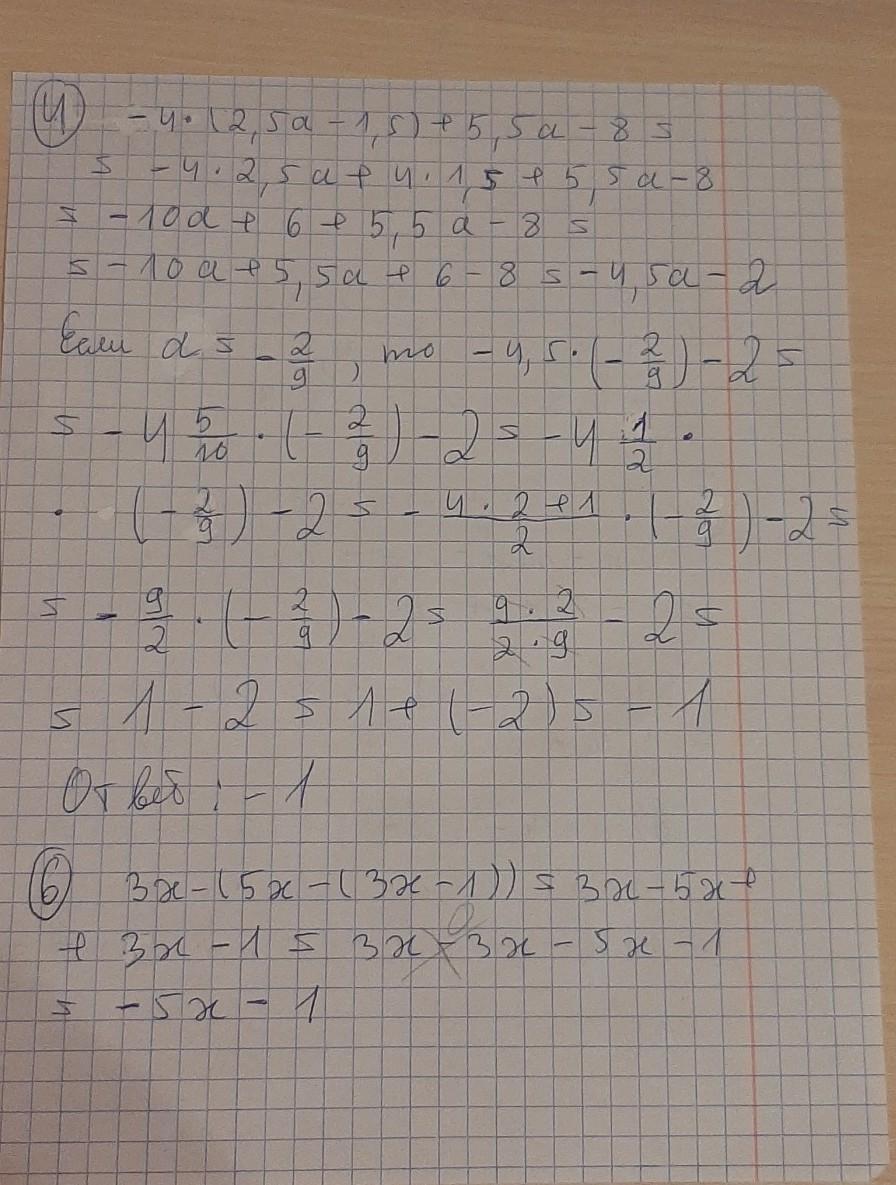 ④ -4·(2,5a-1,5)+5,5a-8=
= -4·2,5a+4·1,5+5,5a-8
= -10a+6+5,5a-8=
= -10a+5,5a+6-8=-4,5a-2
Если a=-2/9, то -4,5·(-2/9)-2=
= -4 5/10·(-2/9)-2=-4 1/2·
·(-2/9)-2=-(4·2+1)/2·(-2/9)-2=
= -9/2·(-2/9)-2=(9·2)/(2·9)-2=
= 1-2=1+(-2)=-1
Ответ: -1
⑥ 3x-(5x-(3x-1))=3x-5x+
+3x-1=3x-3x-5x-1
= -5x-1